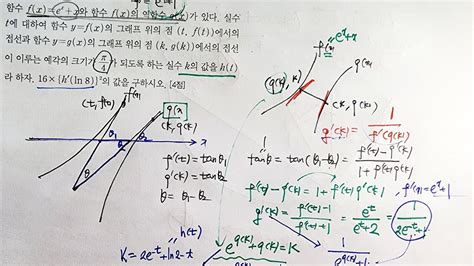 함수 f(x)=eˣ+x와 함수 f(x)의 역함수 g(x)가 있다. 실수
t에 대하여 함수 y=f(x)의 그래프 위의 점 (t, f(t))에서의
접선과 함수 y=g(x)의 그래프 위의 점 (k, g(k))에서의 접선
이 이루는 예각의 크기가 π/4 가 되도록 하는 실수 k의 값을 h(t)
라 하자. 16×{h′(ln8)}²의 값을 구하시오. [4점]
(t, f(t))
f(x)
g(x)
(k, g(k))
θ₁
θ₂
θ
x
f′(t)=tanθ₁
g′(k)=tanθ₂
θ=θ₁-θ₂
h(t)
K=2e^-t+ln2-t
f(x)=eˣ+x
(g(k), k)
(k, g(k))
g′(k)=1/f′(g(k))
tanθ=tan(θ₁-θ₂)=(f′(t)-g′(k))/(1+f′(t)g′(k))
f′(t)-g′(k)=1+f′(t)g′(k), f′(x)=eˣ+1
g′(k)=(f′(t)-1)/(f′(t)+1)=e^t/(e^t+2)=1/(2e^-t+1)
e^g(k)+g(k)=K
1/(e^g(k)+1)